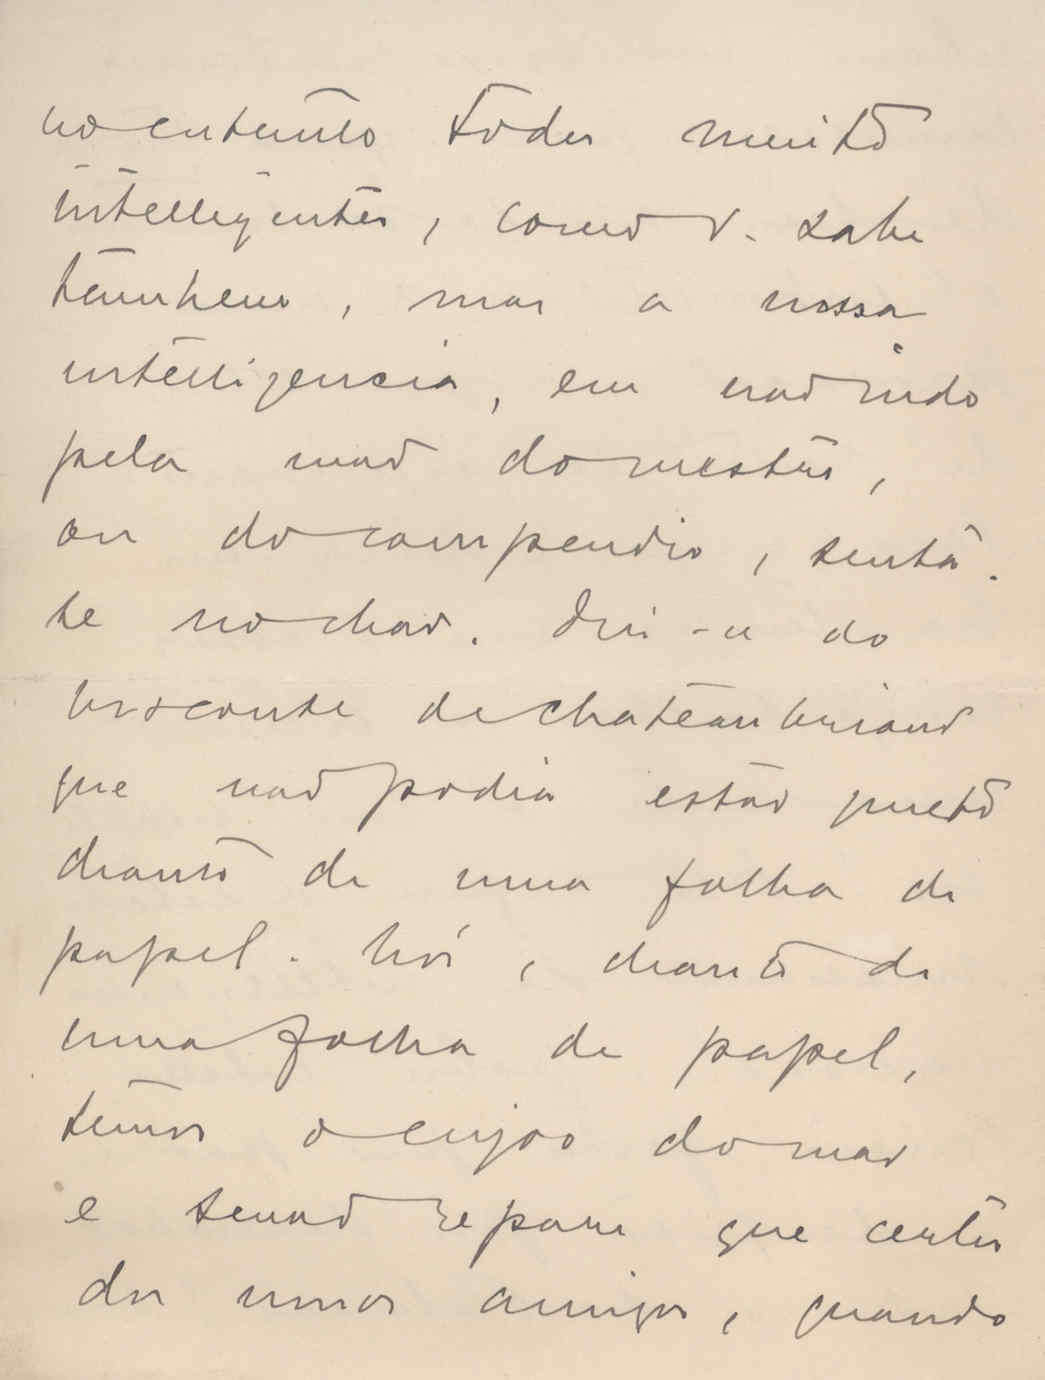 no entanto todos muito
intelligentes, como v. sabe
tambem, mas a nossa
intelligencia, em não indo
pela mão do mestre,
ou do compendio, senta-
se no chão. Diz-se do
visconte de chateaubriand
que não podia estar quieto
deante de uma folha de
papel. Nós, deante de
uma folha de papel,
temos o enjoo do mar
e senão repare que certos
dos nossos amigos, quando